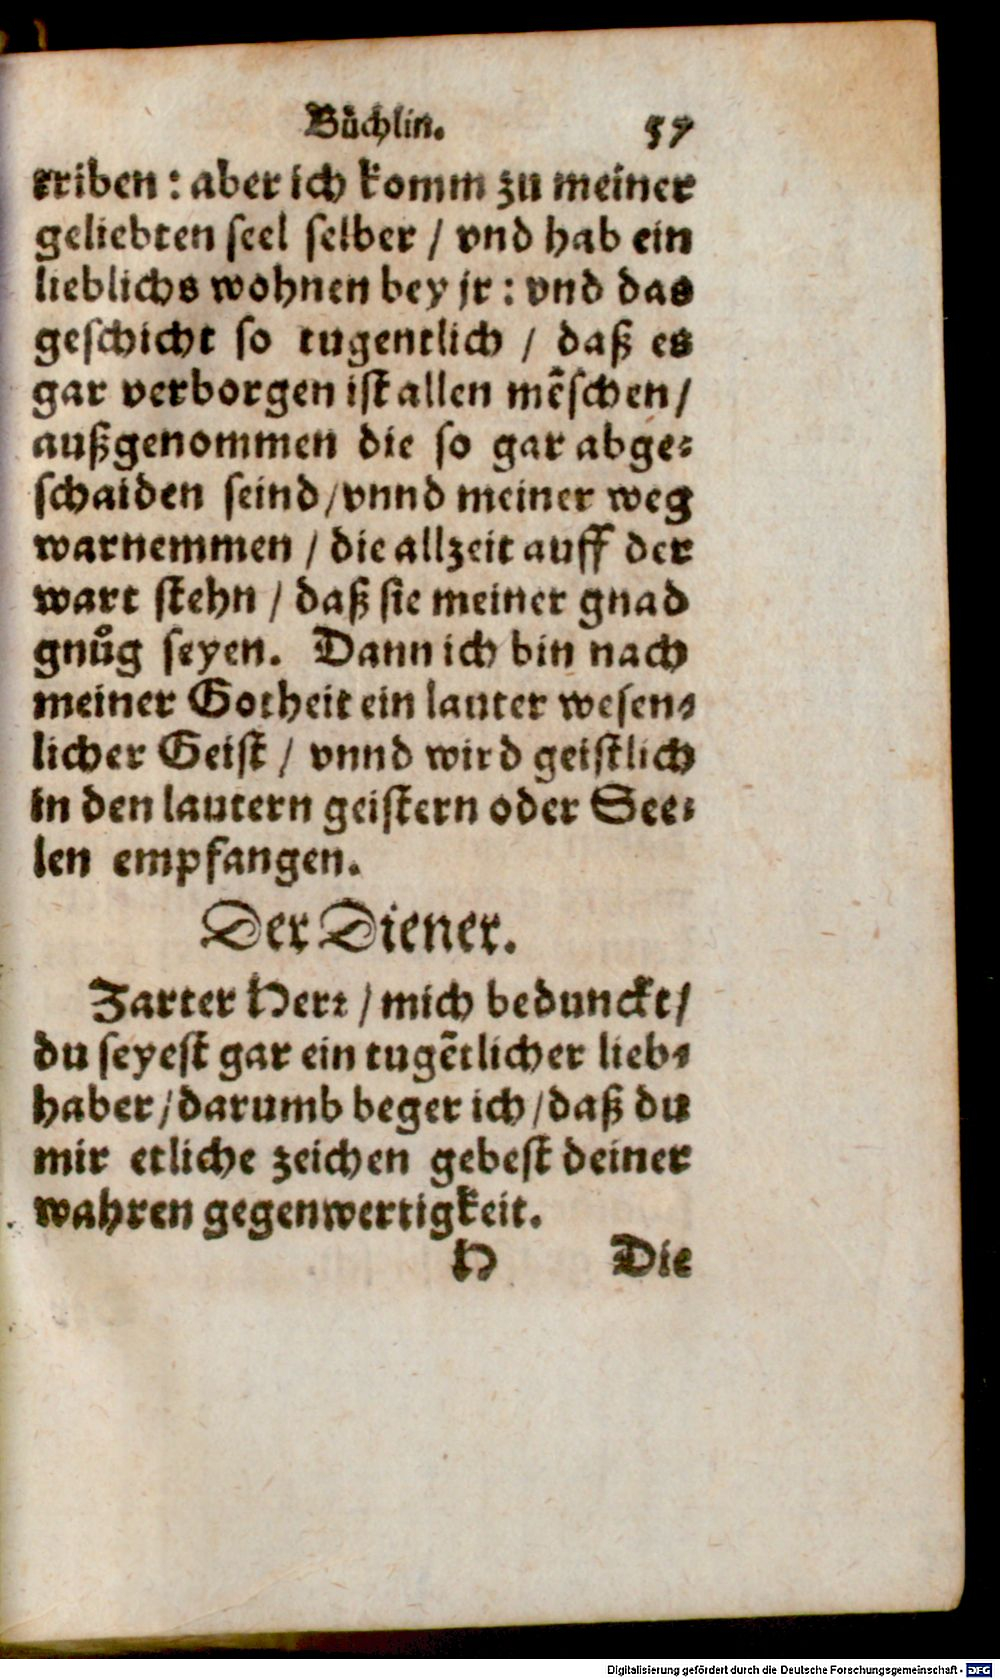 Bůchlin. 57
triben: aber ich komm zu meiner
geliebten seel selber / vnd hab ein
lieblichs wohnen bey jr: vnd das
geschicht so tugentlich / daß es
gar verborgen ist allen mẽschen /
außgenommen die so gar abge⸗
schaiden seind / vnnd meiner weg
warnemmen / die allzeit auff der
wart stehn / daß sie meiner gnad
gnůg seyen. Dann ich bin nach
meiner Gotheit ein lauter wesen⸗
licher Geist / vnnd wird geistlich
in den lautern geistern oder See⸗
len empfangen.
Der Diener.
Zarter Herr / mich bedunckt /
du seyest gar ein tugẽtlicher lieb⸗
haber / darumb beger ich / daß du
mir etliche zeichen gebest deiner
wahren gegenwertigkeit.
H Die
Digitalisierung gefördert durch die Deutsche Forschungsgemeinschaft - DFG